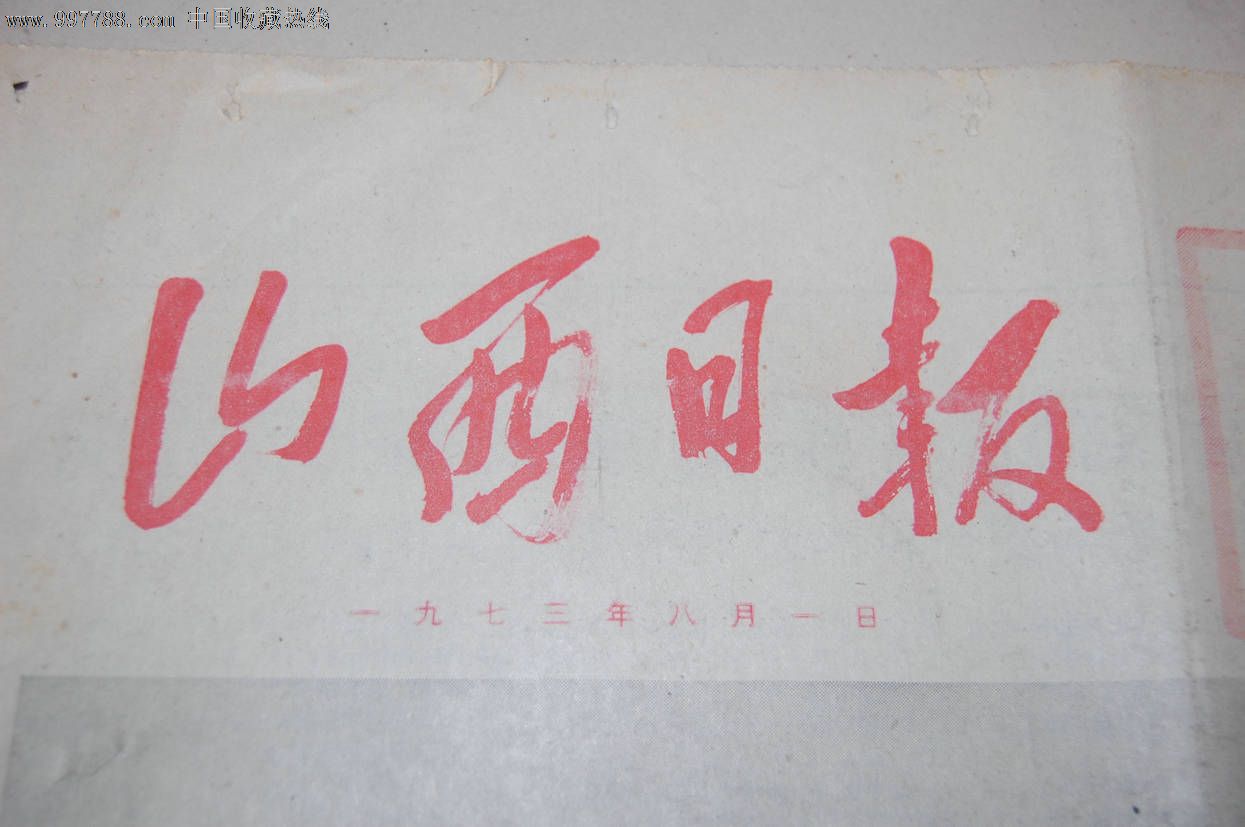 www.997788.com 中国收藏热线
山西日报
一九七三年八月一日